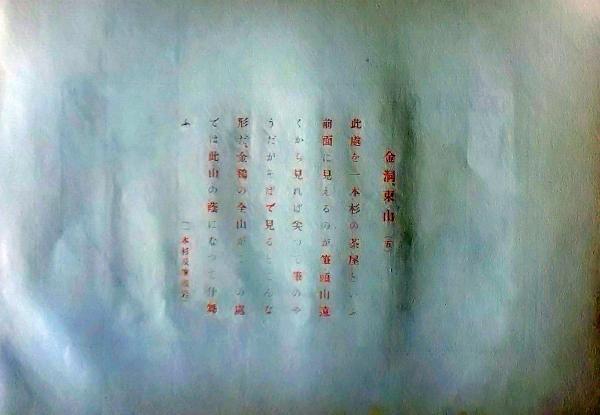 金洞東山（五）
此處を一本杉の茶屋といふ
前面に見えるのが筆頭山遠
くから見れば尖つて筆のや
うだがそばで見るとこんな
形だ、金鷄の全山がこの處
では此山の蔭になつて仕舞
ふ
（一本杉及筆頭岩）